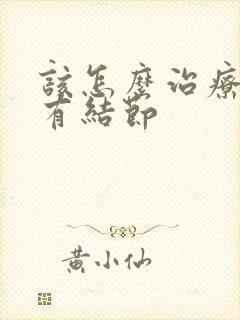 該怎麼治療
有結節
黃小仙